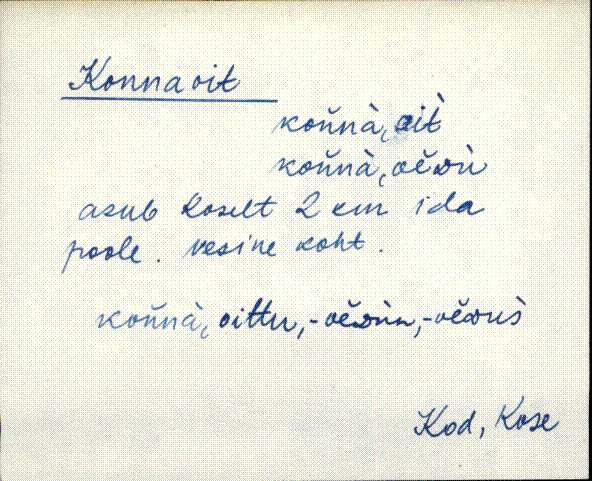 Konna oit
koňnà, oìt̀
koňnà, oĕdù
asub Koselt 2 km ida
poole. vesine koht.
koňnà, oittu, -oĕdùn, -oĕdus̀
Kod, Kose